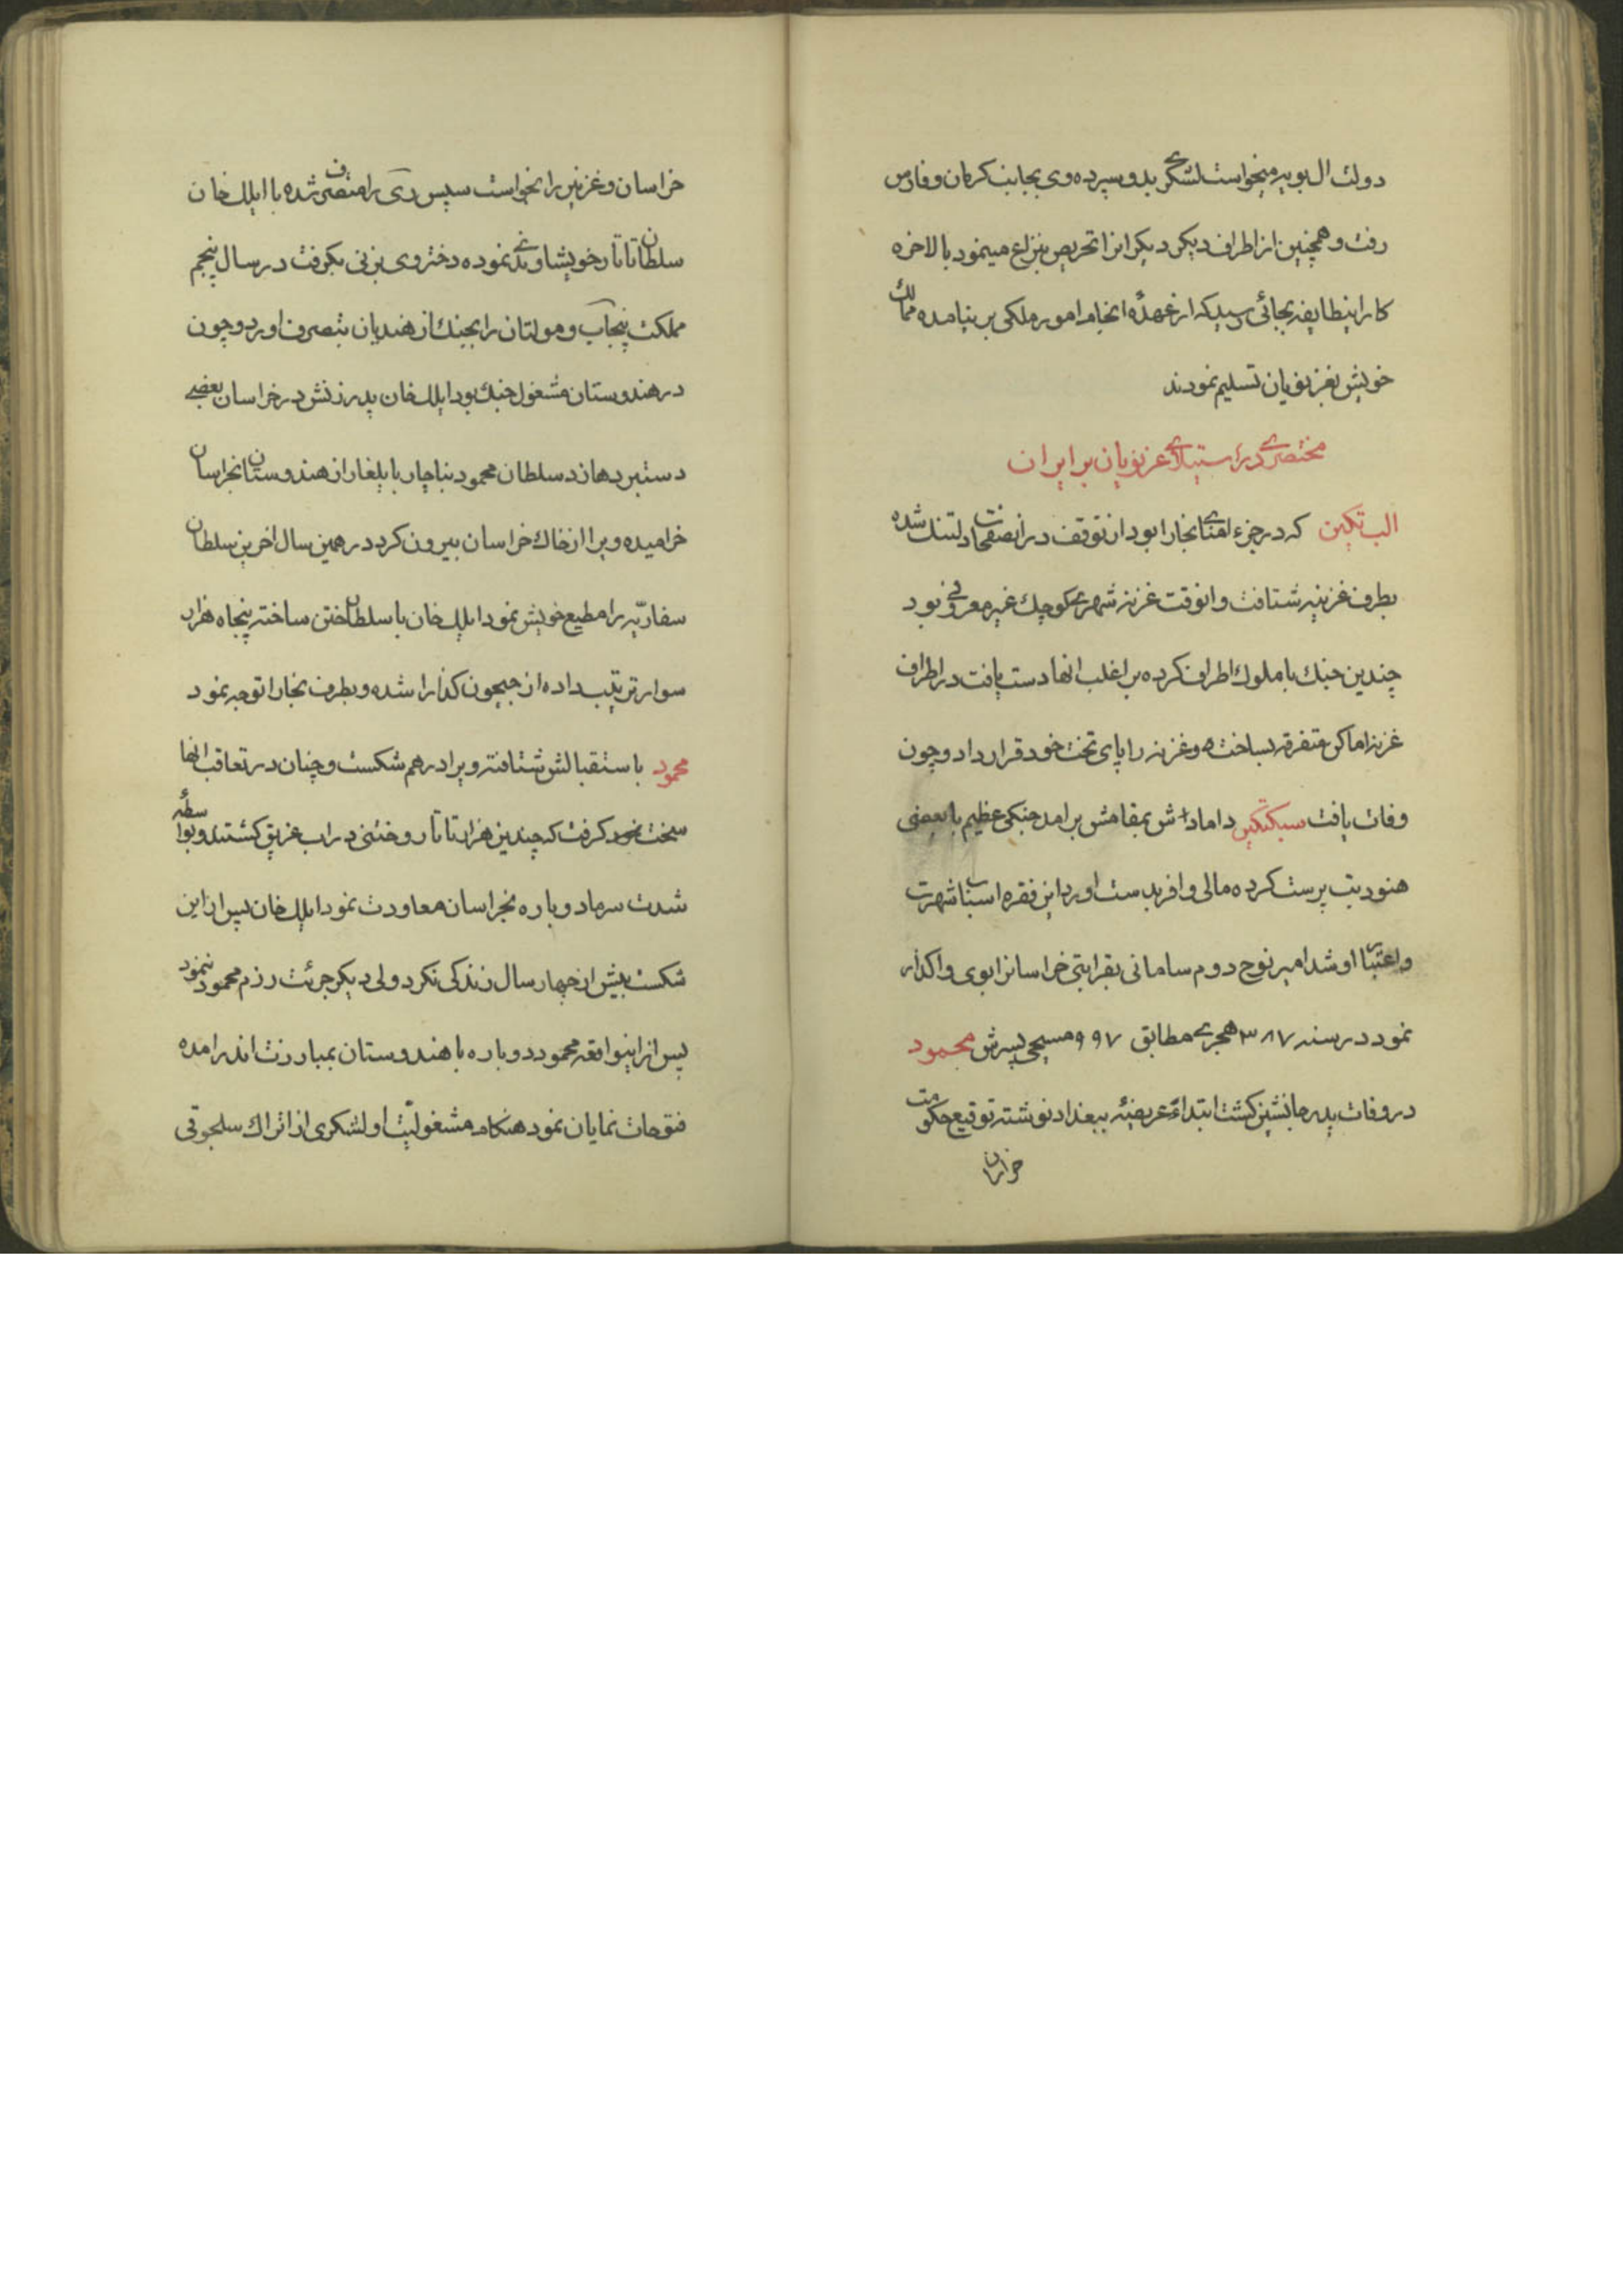 دولت ال بویه میخواست لشکری بدو سپرده وی بجانب کرمان و فارس
رفت و همچنین از اطراف دیکر دیکرانرا تحریص بنزاع مینمود بالاخره
کار اینطایفه بجائی رسید که از عهدهٔ انجام امور ملکی بر نیامده ممالک
خویش بغزنویان تسلیم نمودند
مختصری در استیلای غزنویان بر ایران
الب تکین که در جزء امنای بخارا بود از توقف در انصفحات دلتنک شده
بطرف غزنیه شتافت و انوقت غزنه شهری کوچک غیر معروفی بود
چندین جنک با ملوک اطراف کرده بر اغلب انها دست یافت در اطراف
غزنه اماکن متفرقه بساخت و غزنه را پای تخت خود قرار داد و چون
وفات یافت سبکتکین دامادش بمقامش بر امد جنکی عظیم با بعضی
هنود بت پرست کرده مالی وافر بدست اورد این فقره اسباب شهرت
و اعتبار او شد امیر نوح دوم سامانی بقرابتی خراسانرا بوی واکذار
نمود در سنه ۳۸۷ هجری مطابق ۹۹۷ مسیحی پسرش محمود
در وفات پدر جانشین کشت ابتداء عریضهٔ ببغداد نوشته توقیع حکومت
خراسان
خراسان و غزنین را بخواست سپس ری را متصرف شده با ایلک خان
سلطان تاتار خویشاوندی نموده دختر وی بزنی بکرفت در سال پنجم
مملکت پنجاب و مولتان را بجنک از هندیان بتصرف اورد و چون
در هندوستان مشغول جنک بود ایلک خان پدر زنش در خراسان بعضی
دستبردها زد سلطان محمود بناچار با یلغار از هندوستان بخراسان
خرامیده ویرا از خاک خراسان بیرون کرد در همین سال اخرین سلطان
سفاریه را مطیع خویش نمود ایلک خان با سلطان ختن ساخته پنجاه هزار
سوار ترتیب داده از جیحون کذارا شده و بطرف بخارا توجه نمود
محمود باستقبالش شتافته ویرا در هم شکست و چنان در تعاقب انها
سخت کرفت که چندین هزار تاتار و ختنی در اب غریق کشتند و بواسطهٔ
شدت سرما دوباره بخراسان معاودت نمود ایلک خان پس از این
شکست بیش از چهار سال زندکی نکرد ولی دیکر جرئت رزم محمود ننمود
پس از اینواقعه محمود دوباره با هندوستان بمبارزت اندر امده
فتوحات نمایان نمود هنکام مشغولیت او لشکری از اتراک سلجوقی